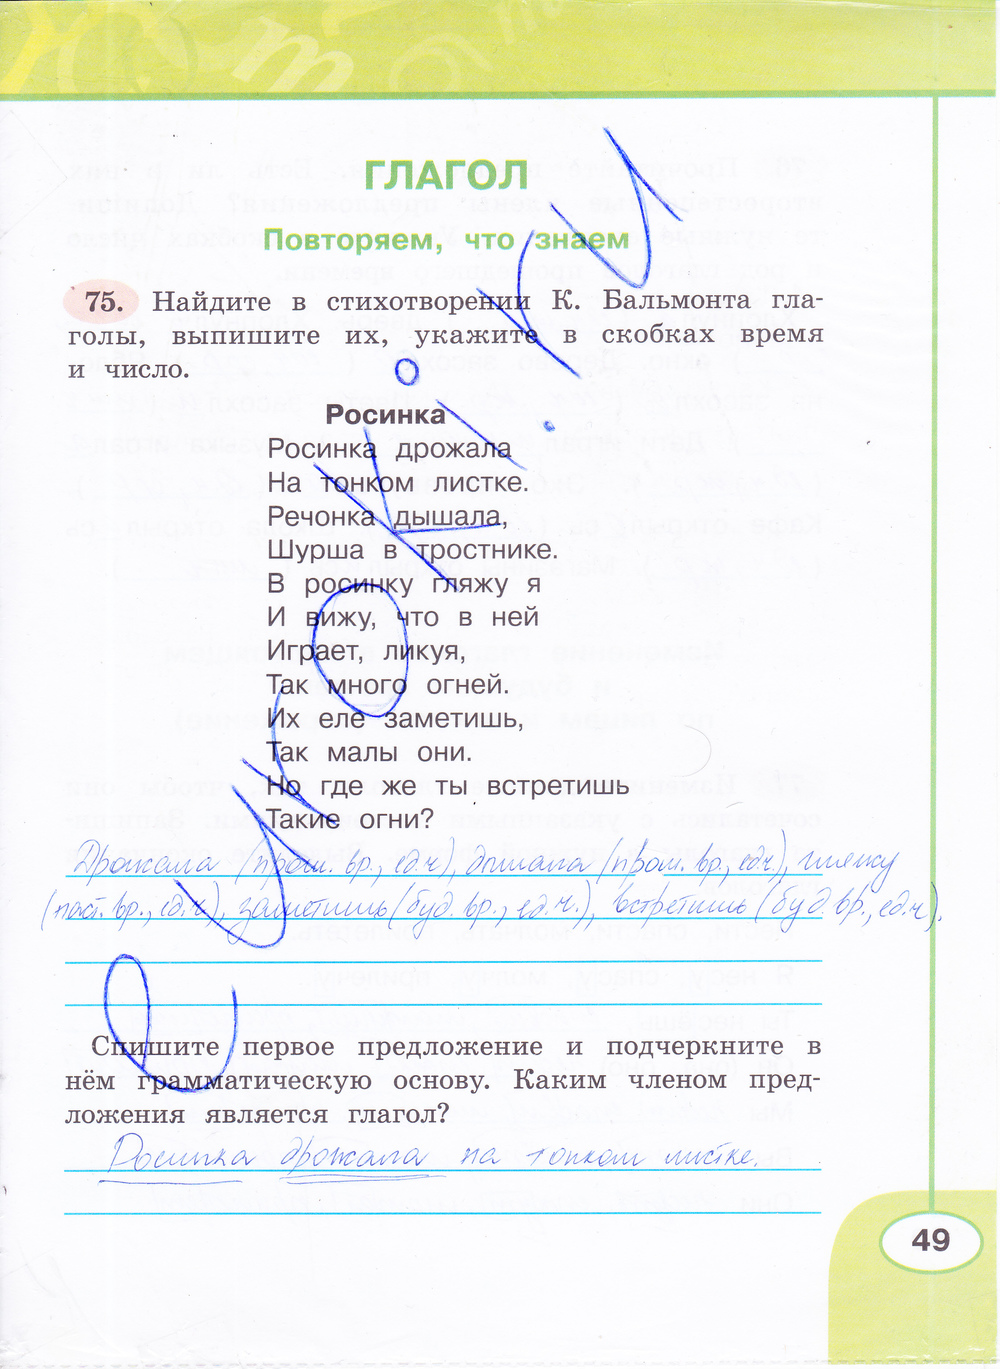 ГЛАГОЛ
Повторяем, что знаем
75. Найдите в стихотворении К. Бальмонта гла-
голы, выпишите их, укажите в скобках время
и число.
Росинка
Росинка дрожала
На тонком листке.
Речонка дышала,
Шурша в тростнике.
В росинку гляжу я
И вижу, что в ней
Играет, ликуя,
Так много огней.
Их еле заметишь,
Так малы они.
Но где же ты встретишь
Такие огни?
Дрожала (прош. вр., ед.ч), дышала (прош. вр., ед.ч), гляжу
(наст. вр., ед.ч), заметишь (буд. вр., ед.ч.), встретишь (буд. вр., ед.ч).
Спишите первое предложение и подчеркните в
нём грамматическую основу. Каким членом пред-
ложения является глагол?
Росинка дрожала на тонком листке.
49